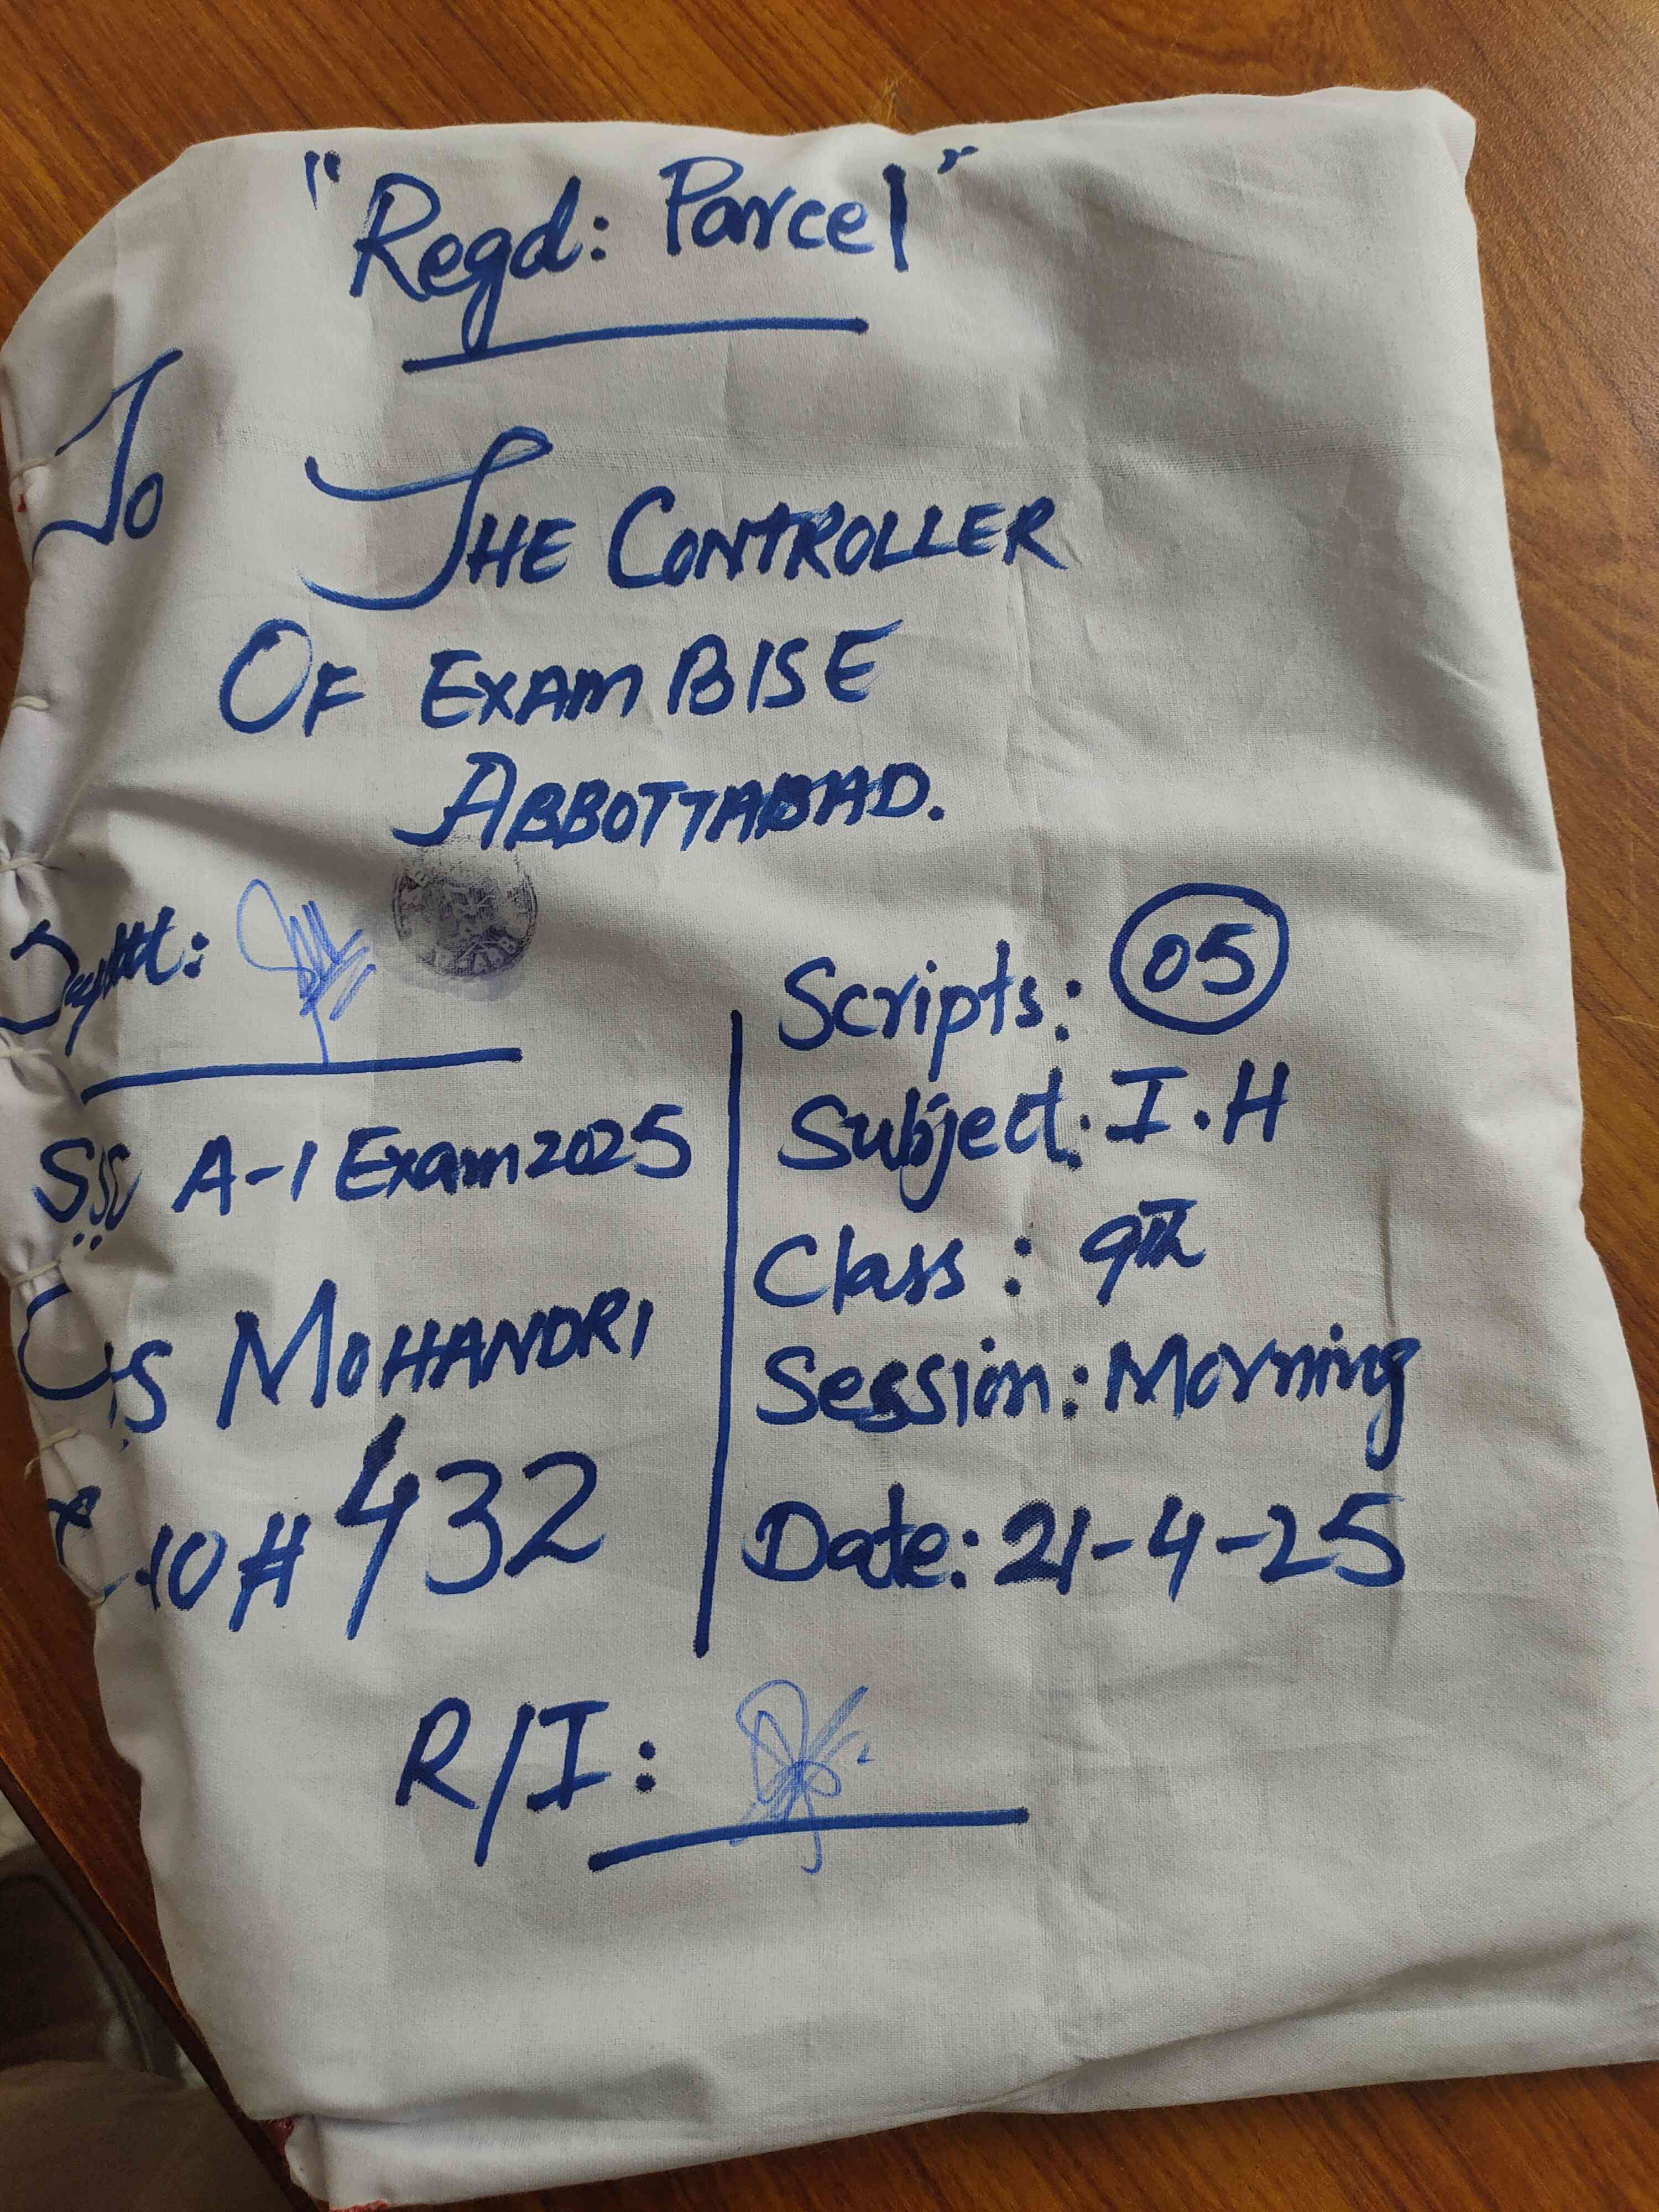 "Regd: Parcel"
To
THE CONTROLLER
OF EXAM BISE
ABBOTTABAD.
Supdtt:
SSC A-1 Exam 2025
MOHANDRI
# 432
Scripts: 05
Subject: I.H
Class: 9th
Session: Morning
Date: 21-4-25
R/I: